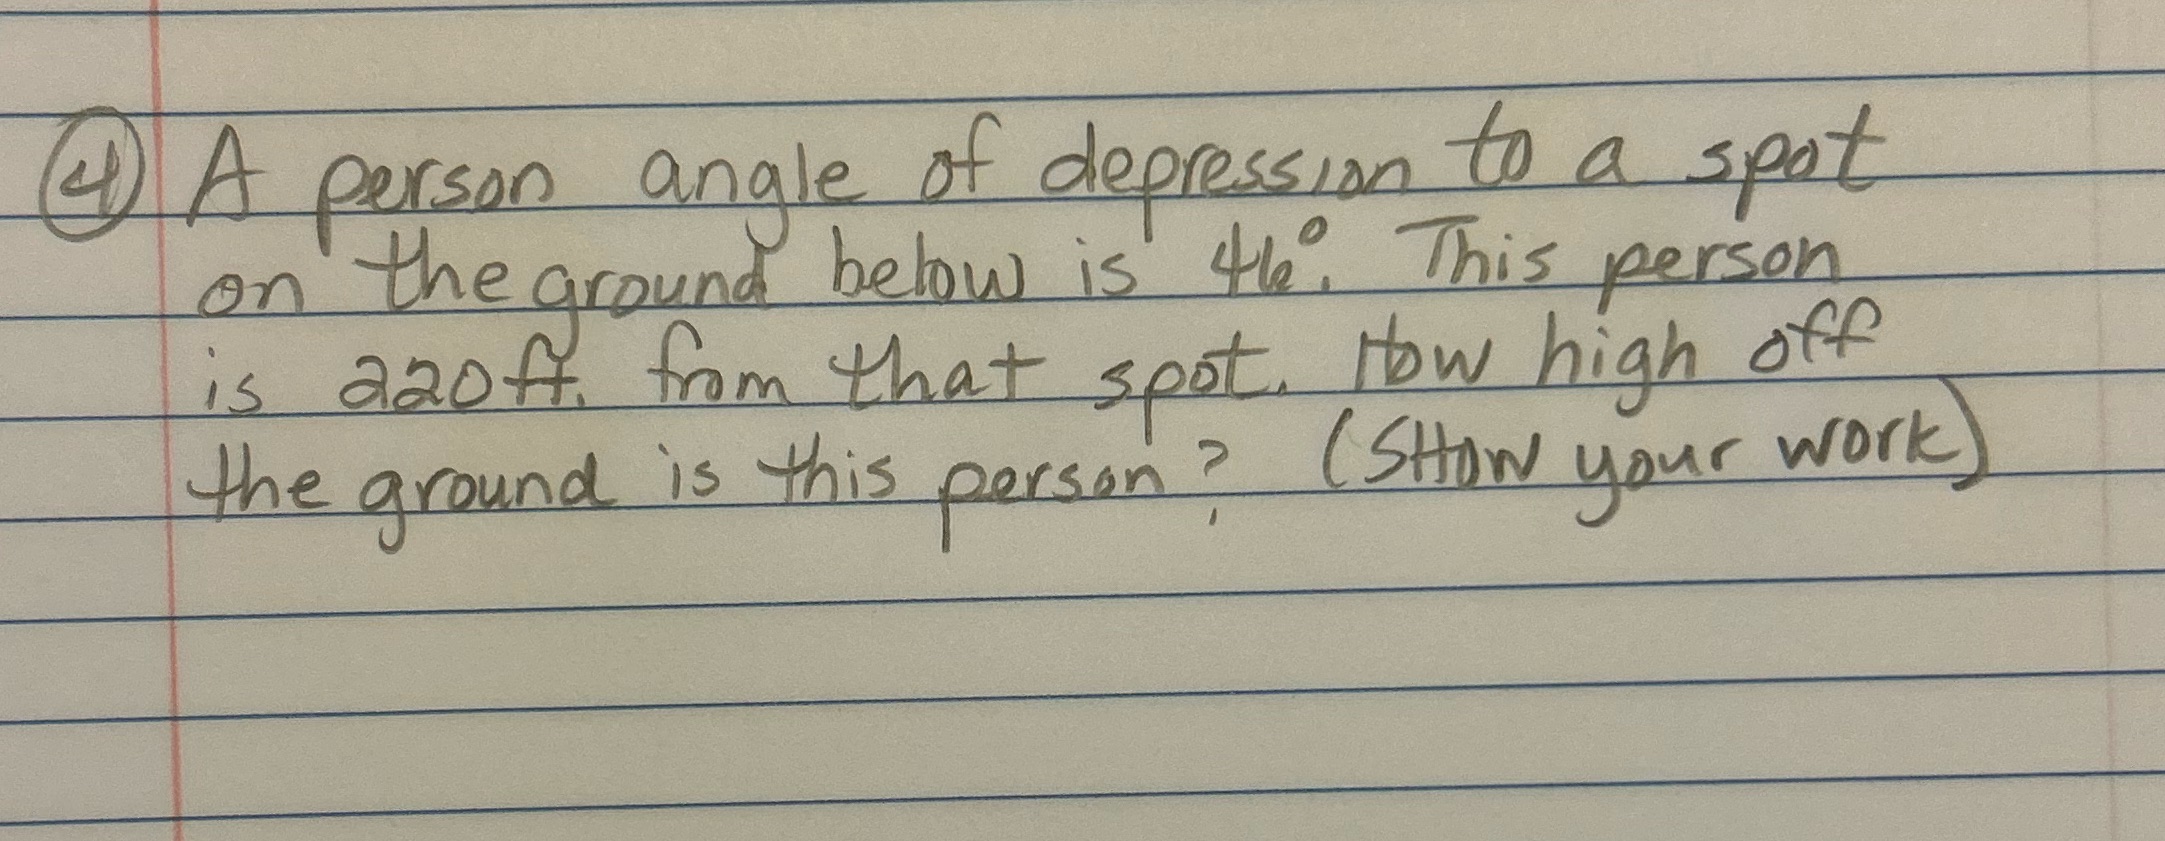 ④ A person angle of depression to a spot
on the ground below is 46°. This person
is 220ft. from that spot. How high off
the ground is this person? (SHOW your work)